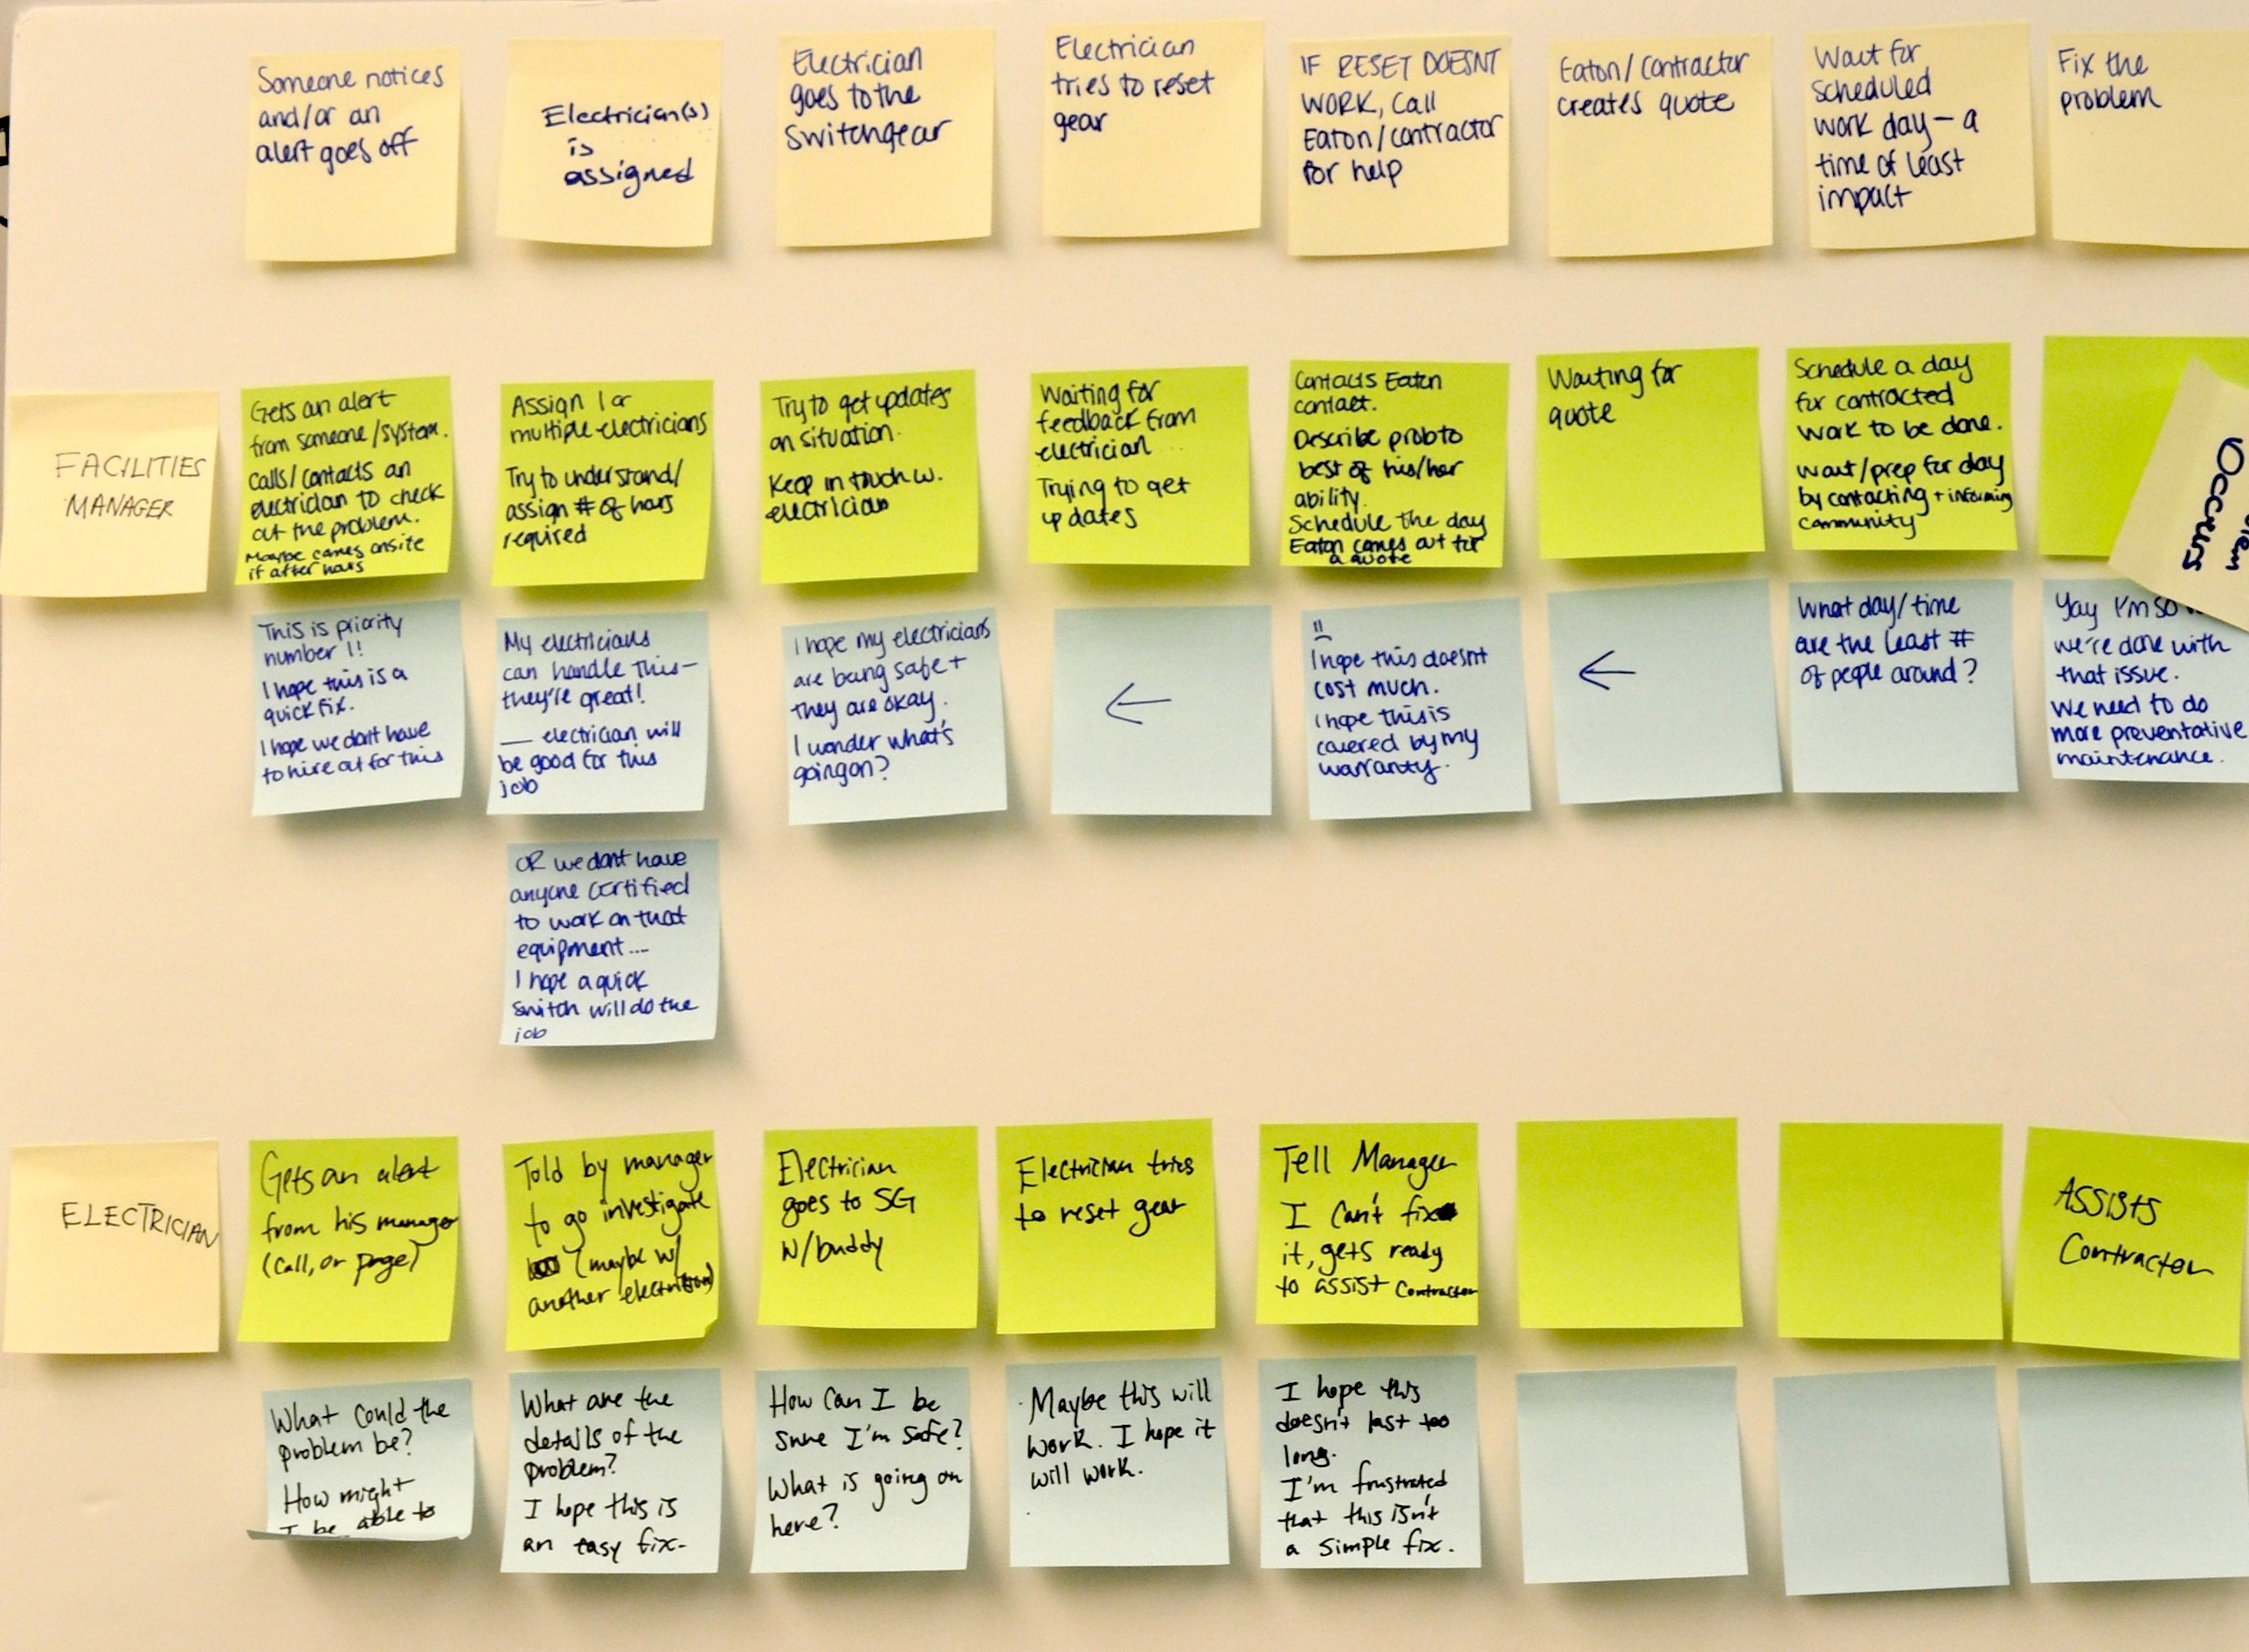 Someone notices
and/or an
alert goes off
Electrician(s)
is
assigned
Electrician
goes to the
Switchgear
Electrician
tries to reset
gear
IF RESET DOESNT
WORK, Call
Eaton/contractor
for help
Eaton/Contractor
creates quote
Wait for
scheduled
work day – a
time of least
impact
Fix the
problem
FACILITIES
MANAGER
Gets an alert
from someone/system.
calls/contacts an
electrician to check
out the problem.
Maybe comes onsite
if after hours
Assign 1 or
multiple electricians
Try to understand/
assign # of hours
required
Try to get updates
on situation.
Keep in touch w.
electrician
Waiting for
feedback from
electrician
Trying to get
updates
Contacts Eaton
contact.
Describe prob to
best of his/her
ability.
Schedule the day
Eaton comes out for
a quote
Waiting for
quote
Schedule a day
for contracted
work to be done.
wait/prep for day
by contacting + informing
community
Occurs
This is priority
number 1!
I hope this is a
quick fix.
I hope we don't have
to hire out for this
My electricians
can handle this –
they're great!
___ electrician will
be good for this
job
I hope my electricians
are being safe +
they are okay.
I wonder what's
going on?
←
I hope this doesn't
cost much.
I hope this is
covered by my
warranty.
←
What day/time
are the least #
of people around?
Yay I'm so
we're done with
that issue.
We need to do
more preventative
maintenance.
OR we don't have
anyone certified
to work on that
equipment....
I hope a quick
switch will do the
job
ELECTRICIAN
Gets an alert
from his manager
(Call, or page)
Told by manager
to go investigate
(maybe w/
another electrician)
Electrician
goes to SG
w/buddy
Electrician tries
to reset gear
Tell Manager
I can't fix
it, gets ready
to assist contractor
ASSISTS
Contractor
What could the
problem be?
How might
I be able to
What are the
details of the
problem?
I hope this is
an easy fix-
How can I be
sure I'm safe?
What is going on
here?
Maybe this will
work. I hope it
will work.
I hope this
doesn't last too
long.
I'm frustrated
that this isn't
a simple fix.